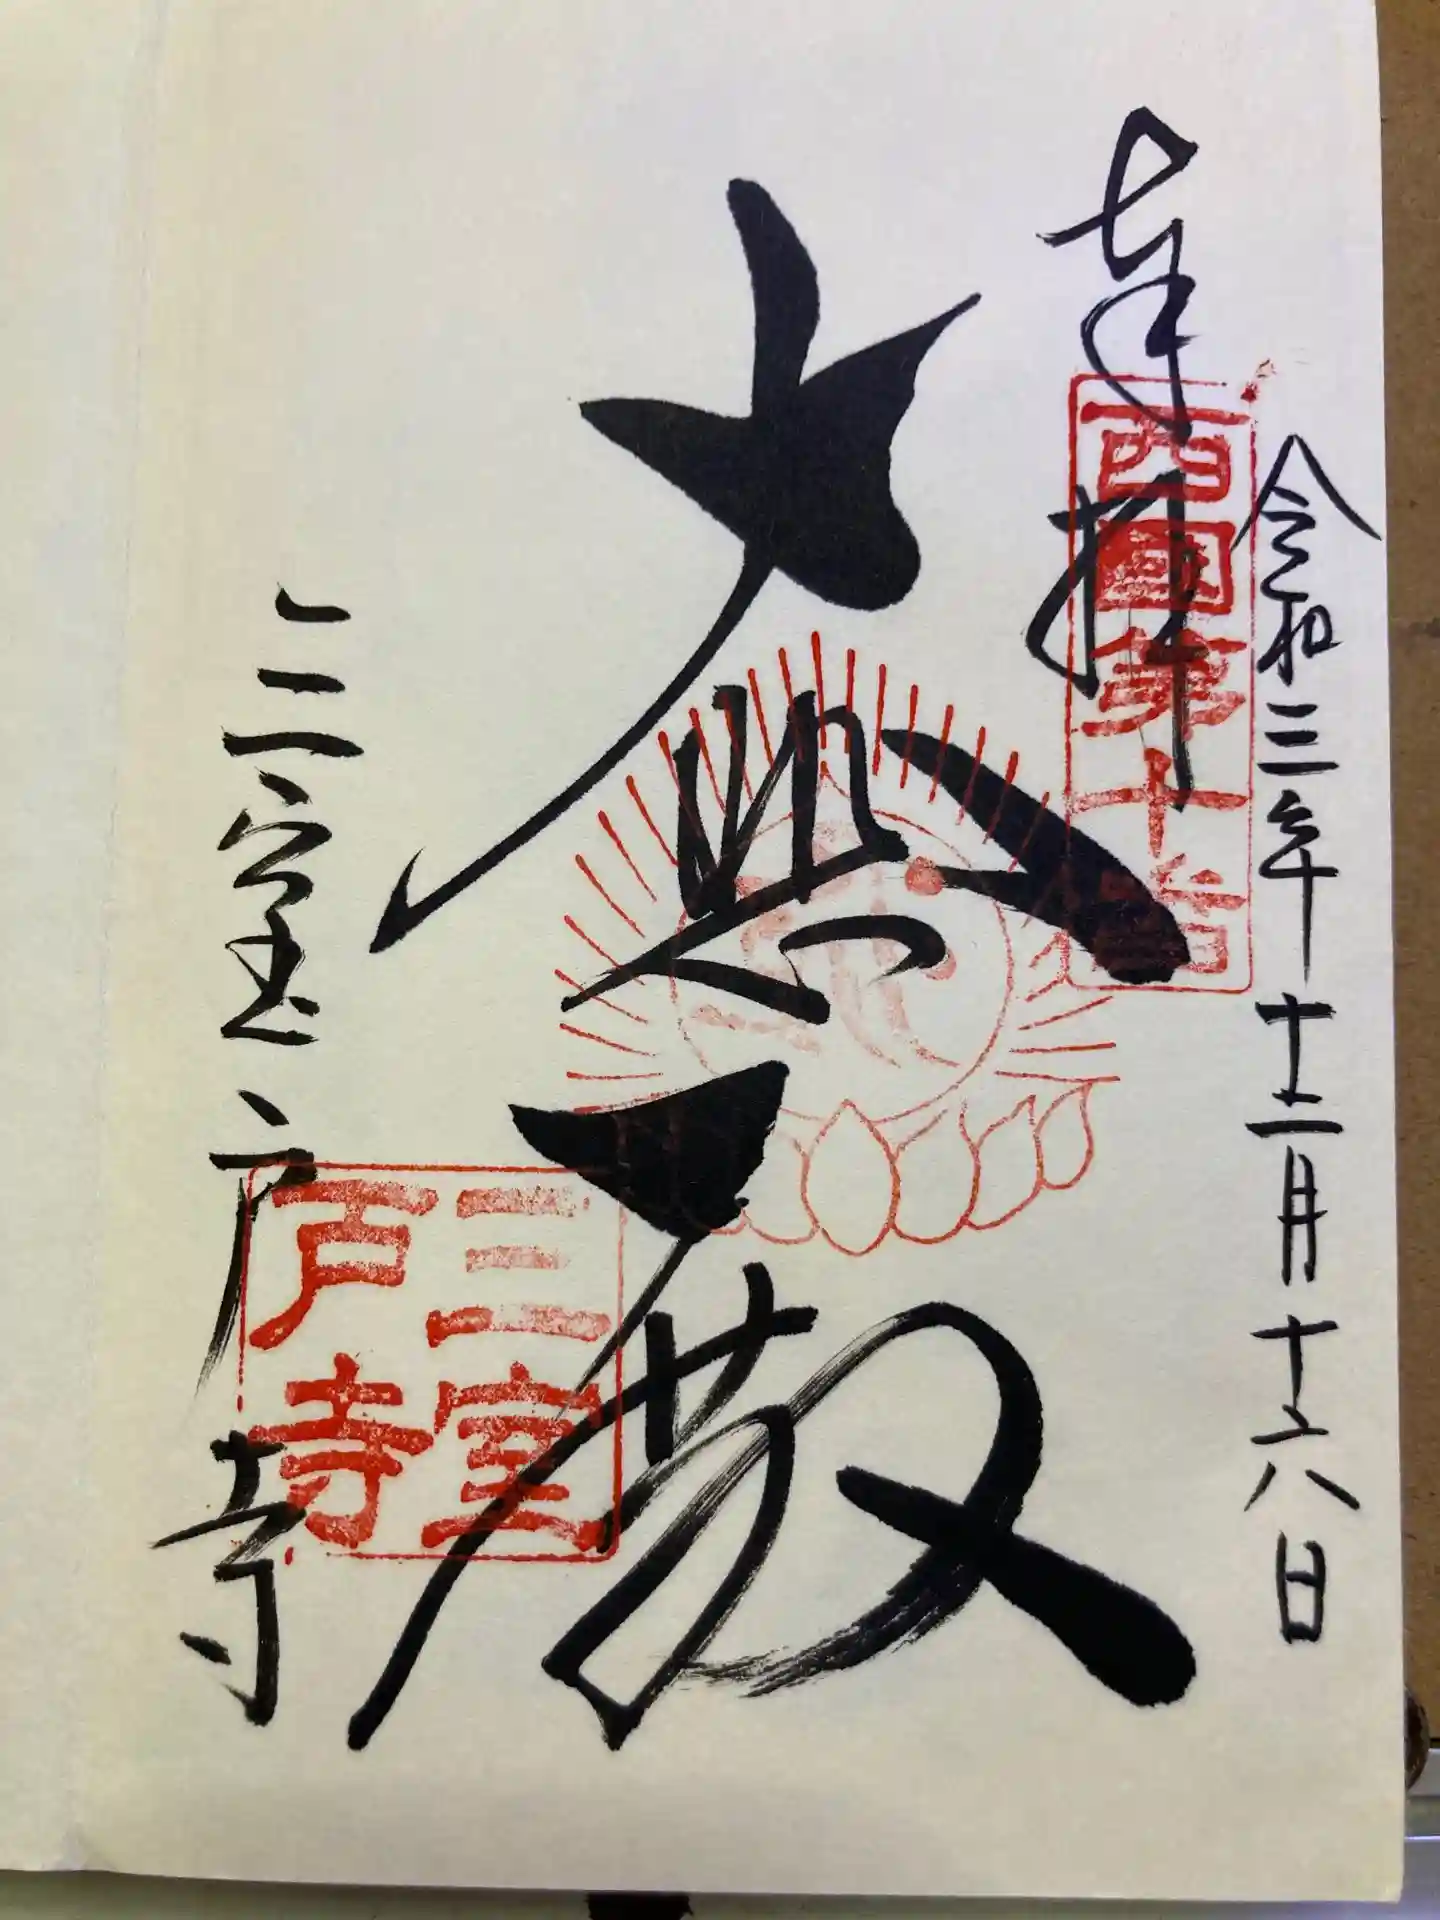 令和三年十二月十六日
奉拝
西国第十番
大悲殿
三室戸寺
三室戸寺